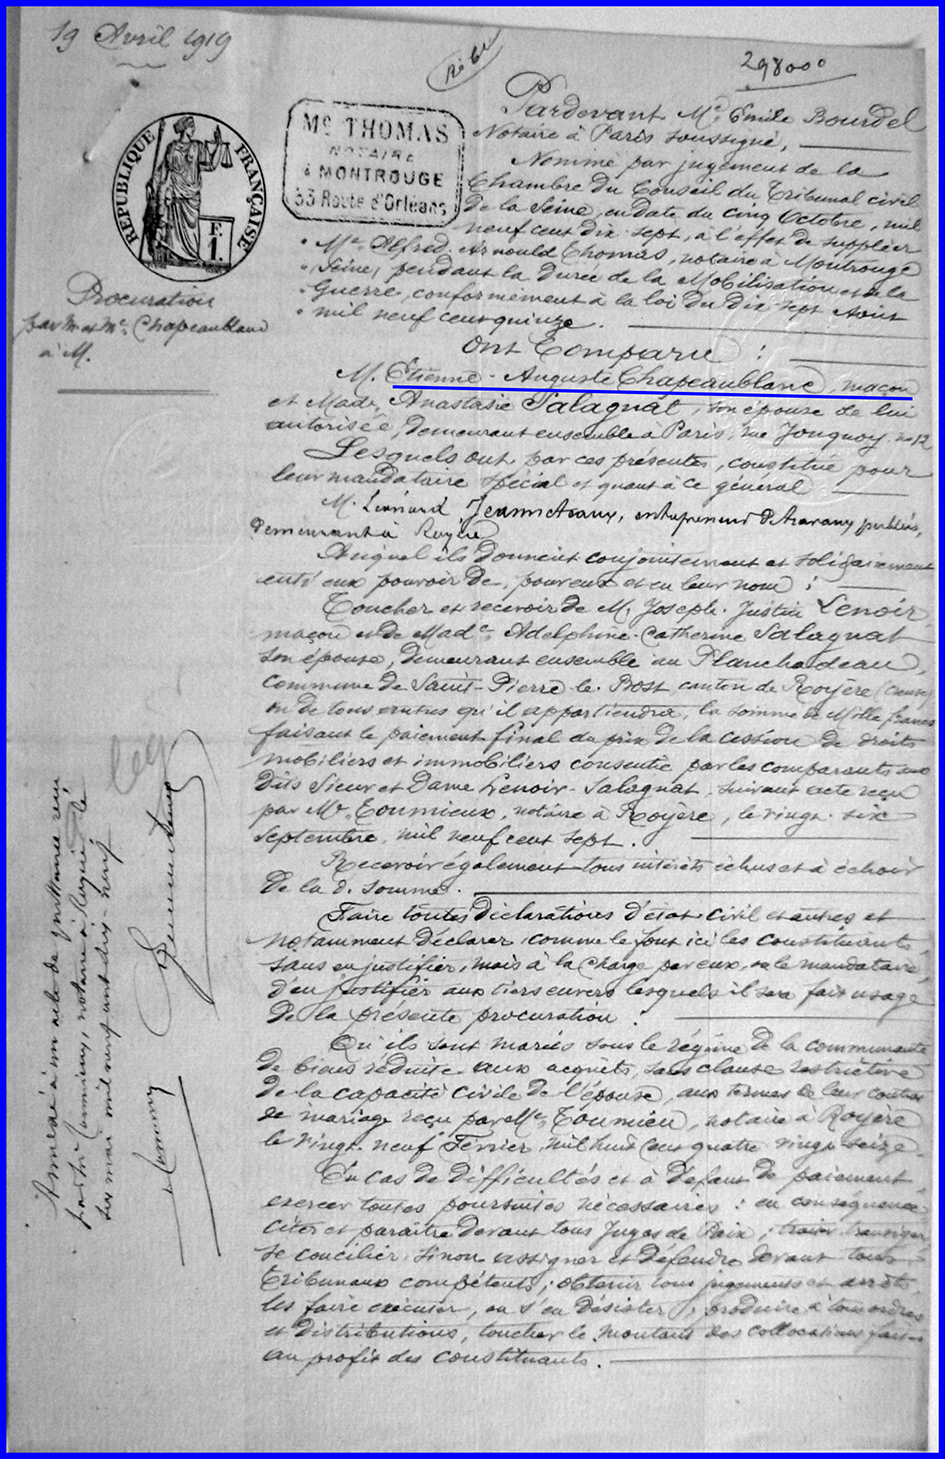 19 Avril 1919
298000
RÉPUBLIQUE FRANÇAISE
F.
1.
Me THOMAS
NOTAIRE
à MONTROUGE
33 Route d'Orléans
Procuration
par M. et Me. Chapeaublanc
à M.
Pardevant Me. Emile Bourdel
Notaire à Paris soussigné,
Nommé par jugement de la
Chambre du Conseil du Tribunal civil
de la Seine, en date du cinq Octobre, mil
neuf cent dix sept, à l'effet de suppléer
Me. Alfred Arnould Thomas, notaire à Montrouge
Seine, pendant la durée de la Mobilisation et de la
Guerre, conformément à la loi du dix sept Août
mil neuf cent quinze.
Ont Comparu :
M. Etienne-Auguste Chapeaublanc, maçon
et Made. Anastasie Salagnat, son épouse de lui
autorisée, demeurant ensemble à Paris, rue Jonquoy no 12
Lesquels ont, par ces présentes, constitué pour
leur mandataire spécial et quant à ce général
M. Léonard Jeannetaux, entrepreneur de travaux publics,
demeurant à Royère
Auquel ils donnent conjointement et solidairement
entr'eux pouvoir de, pour eux et en leur nom :
Toucher et recevoir de M. Joseph-Justin Lenoir,
maçon et de Made. Adelphine-Catherine Salagnat
son épouse, demeurant ensemble au Planchadeau,
commune de Saint-Pierre-le-Bost canton de Royère (Creuse)
ou de tous autres qu'il appartiendra, la somme de Mille francs
faisant le paiement final du prix de la cession de droits
mobiliers et immobiliers consentie par les comparants aux
dits Sieur et Dame Lenoir-Salagnat, suivant acte reçu
par Me. Toumieux, notaire à Royère, le vingt-six
Septembre, mil neuf cent sept.
Recevoir également tous intérêts échus et à échoir
de la d. somme.
Faire toutes déclarations d'état-civil et autres et
notamment déclarer, comme le font ici les constituants,
sans en justifier, mais à la charge par eux, ou le mandataire,
d'en justifier aux tiers envers lesquels il sera fait usage
de la présente procuration :
Qu'ils sont mariés sous le régime de la communauté
de biens réduite aux acquêts, sans clause restrictive
de la capacité civile de l'épouse, aux termes de leur contrat
de mariage reçu par Me. Toumieu, notaire à Royère
le vingt-neuf Février, mil huit cent quatre vingt seize.
En cas de difficultés et à défaut de paiement,
exercer toutes poursuites nécessaires : en conséquence
citer et paraître devant tous Juges de Paix ; traiter, transiger
se concilier, sinon assigner et défendre devant tous
tribunaux compétents ; obtenir tous jugements et arrêts,
les faire exécuter, ou s'en désister, produire à tous ordres
et distributions, toucher le montant des collocations faites
au profit des constituants.
Annexé à un acte de quittance reçu
par Me notaire à Royère le
mai mil neuf cent dix-neuf